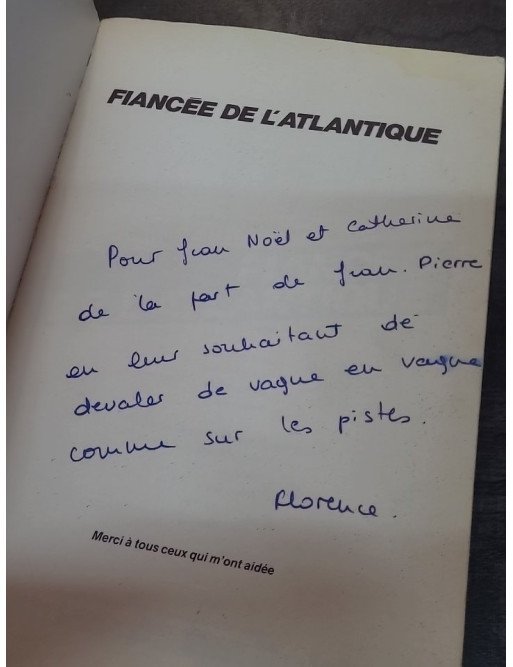 FIANCÉE DE L'ATLANTIQUE
Pour Jean Noël et Catherine
de la part de Jean-Pierre
en leur souhaitant de
devaler de vague en vague
comme sur les pistes.
Florence.
Merci à tous ceux qui m'ont aidée